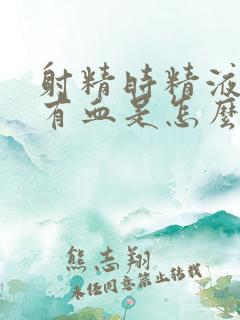 射精时精液
有血是怎麽
熊志翔
未经同意禁止转载